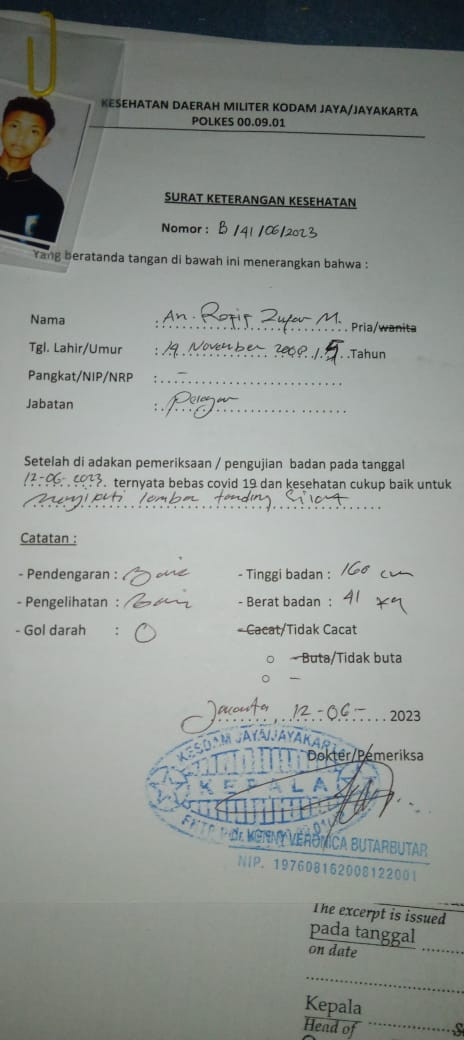 KESEHATAN DAERAH MILITER KODAM JAYA/JAYAKARTA
POLKES 00.09.01
SURAT KETERANGAN KESEHATAN
Nomor : B/41/06/2023
Yang beratanda tangan di bawah ini menerangkan bahwa :
Nama : An. M. Pria/wanita
Tgl. Lahir/Umur : 19 November 2008 / 15 Tahun
Pangkat/NIP/NRP : -
Jabatan : Pelajar
Setelah di adakan pemeriksaan / pengujian badan pada tanggal
12-06-2023 ternyata bebas covid 19 dan kesehatan cukup baik untuk
mengikuti lomba tanding Silat
Catatan :
- Pendengaran : Baik
- Tinggi badan : 160 cm
- Pengelihatan : Baik
- Berat badan : 41 kg
- Gol darah : O
- Cacat/Tidak Cacat
- Buta/Tidak buta
-
Jakarta, 12-06- 2023
Dokter/Pemeriksa
KESDAM JAYA/JAYAKARTA
KEPALA
dr. KENNY VERONICA BUTARBUTAR
NIP. 197608162008122001
The excerpt is issued
pada tanggal
on date
Kepala
Head of